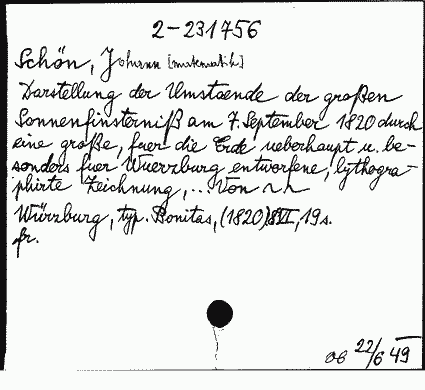 2-231756
Schön, Johann [matematik]
Darstellung der Umstaende der großen
Sonnenfinsterniß am 7. September 1820 durch
eine große, fuer die Erde ueberhaupt u. be-
sonders fuer Wuerzburg entworfene, lythogra-
phirte Zeichnung,.. Von
Würzburg, typ. Bonitas, (1820) 8° VI, 19 s.
fr.
22/6 49